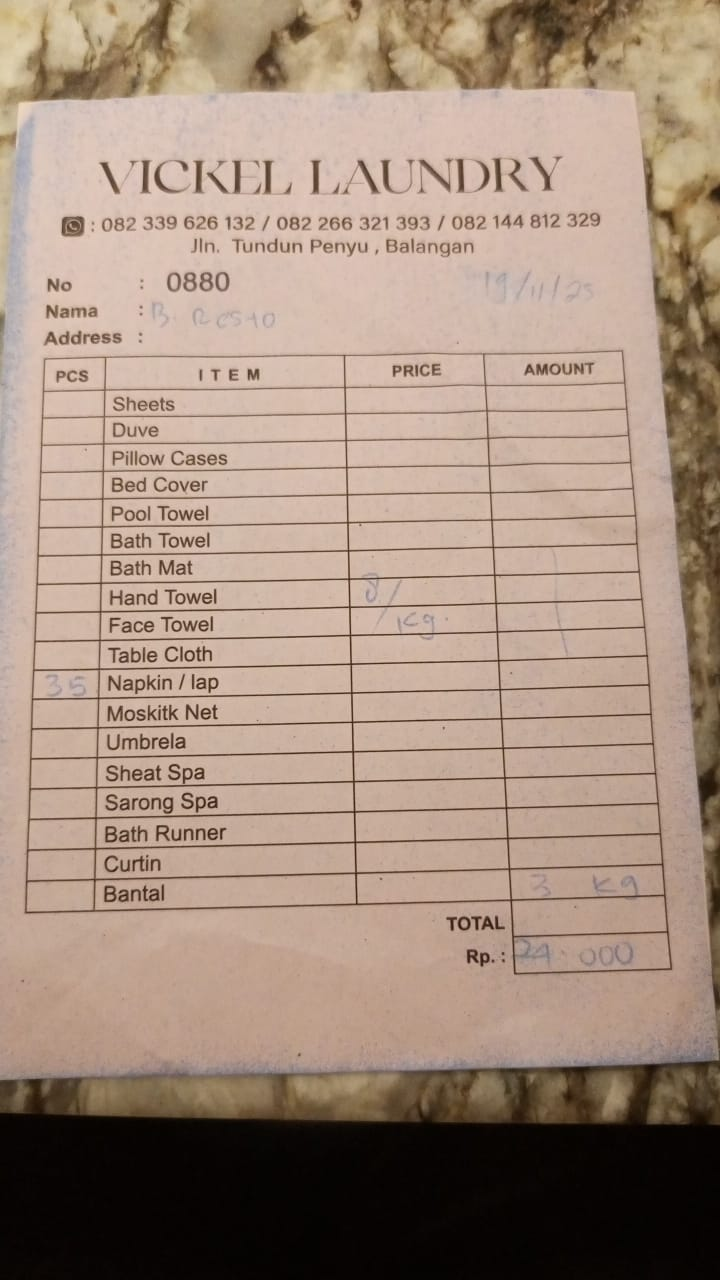 VICKEL LAUNDRY
: 082 339 626 132 / 082 266 321 393 / 082 144 812 329
Jln. Tundun Penyu , Balangan
No : 0880 19/11/25
Nama : B. Resto
Address :
PCS ITEM PRICE AMOUNT
Sheets
Duve
Pillow Cases
Bed Cover
Pool Towel
Bath Towel
Bath Mat
Hand Towel 8/
Face Towel Kg.
Table Cloth
35 Napkin / lap
Moskitk Net
Umbrela
Sheat Spa
Sarong Spa
Bath Runner
Curtin
Bantal 3 Kg
TOTAL
Rp. : 24.000